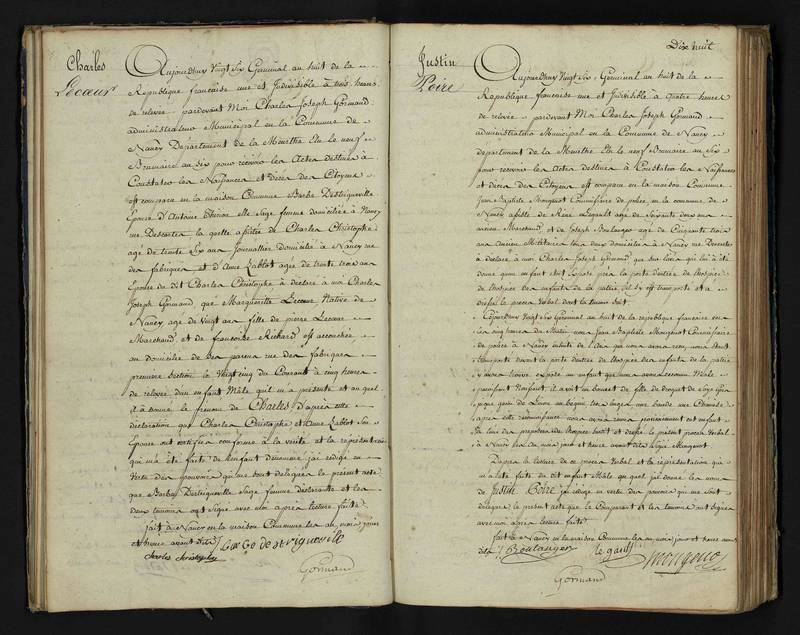 Charles
Lecoeur
Aujourdhuy Vingt Six Germinal an huit de la
Republique francaise une et Indivisible à trois heures
de relevée pardevant Moi Charles Joseph Gormand
administrateur Municipal en la Commune de
Nancy Departement de la Meurthe Elu le neuf
Brumaire an Six pour recevoir les Actes destinés à
Constater les Naissances et deces des Citoyens
est comparu en la maison Commune Barbe Destrigueville
Epouse d'Antoine Thirion elle Sage femme domiciliée à Nancy
rue Descartes la quelle assistée de Charles Christophe
agé de trente Six ans Journallier domicilié à Nancy rue
des fabriques et d'Anne Lablot agée de trente trois ans
Epouse du dit Charles Christophe à declaré a moi Charles
Joseph Gormand que Marguerite Lecoeur Native de
Nancy agé de Vingt ans fille de pierre Lecoeur
Marchand et de francoise Richard est accouchée
au domicile de ses parens rue des fabriques
premiere Section le Vingt cinq du Courant à cinq heures
de relevée d'un enfant Mâle qu'il m'a présenté et au quel
il à donné le prenom de Charles D'après cette
declaration que Charles Christophe et Anne Lablot Son
Epouse ont certifiée conforme à la vérité et la représentation
qui m'a été faite de l'enfant denommé j'ai redigé en
Vertu des pouvoirs qui me sont delegués le présent acte
que Barbe Destrigueville Sage femme déclarante et les
deux temoins ont signé avec moi après lecture faite
fait à Nancy en la maison Commune les an, mois, jours
et heure avant dits
Barbe destrigueville
charles christophe
Gormand
Dix huit
Justin
Poire
Aujourdhuy Vingt Six Germinal an huit de la
Republique francaise une et Indivisible à quatre heures
de relevée pardevant Moi Charles Joseph Gormand
administrateur Municipal en la Commune de Nancy
departement de la Meurthe Elu le neuf Brumaire an Six
pour recevoir les actes destinés à Constater les Naissances
et deces des Citoyens est comparu en la maison Commune
Jean Baptiste Mongenot Commissaire de police en la commune de
Nancy assisté de Réné Legault agé de Soixante deux ans
ancien Marchand et de Joseph Boulanger agé de Cinquante trois
ans ancien Militaire tous deux domiciliés à Nancy rue Descartes
à declaré à moi Charles Joseph Gormand que sur l'avis qui lui à été
donné qu'un enfant etoit Exposé près la porte d'entrée de l'hospice
de l'hospice des enfants de la patrie, il s'y est transporté et a
dressé le procès Verbal dont la teneur Suit
Aujourdhuy Vingt Six Germinal an huit de la republique francaise sur
les cinq heures du Matin nous Jean Baptiste Mongenot Commissaire
de police à Nancy de l'avis que nous avons recu nous sommes
transporté devant la porte d'entrée de l'hospice des enfants de la patrie
y avons trouvé exposé un enfant que nous avons reconnu Mâle
paroissant Naissant il avoit un bonnet de fille de droguet de Soye
après cette circonstance nous avons remis cet enfant
à Nancy les an, mois, jour et heure avant dits Signé Mongenot
D'après la lecture de ce procès Verbal et la représentation qui
m'a été faite du dit enfant Mâle au quel j'ai donné les noms
de Justin Poire j'ai redigé en vertu des pouvoirs qui me sont
delegués le présent acte que le Comparant et les temoins ont Signé
avec moi après lecture faite
fait à Nancy en la maison Commune les an, mois, jour et heure avant
dits J. Boulanger legault Mongenot
Gormand